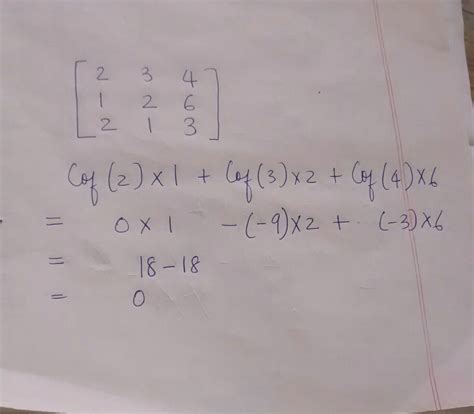 2 3 4
1 2 6
2 1 3
Cof(2)×1 + Cof(3)×2 + Cof(4)×6
= 0×1 -(-9)×2 + (-3)×6
= 18-18
= 0